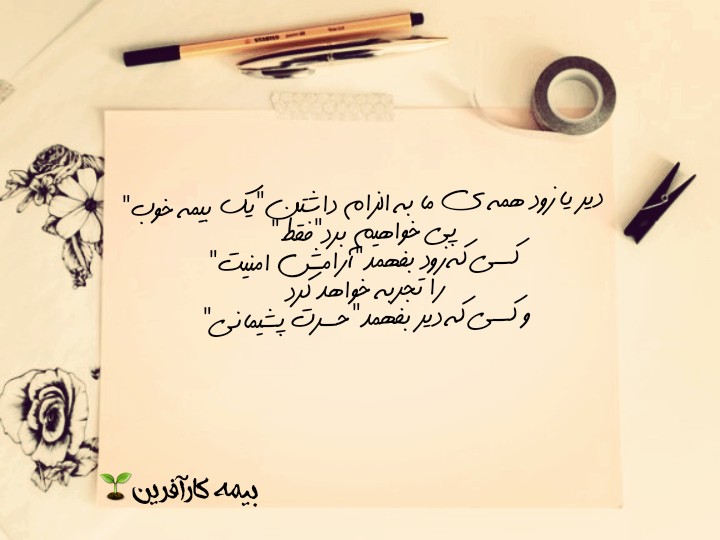 دیر یا زود همه ی ما به الزام داشتن "یک بیمه خوب"
پی خواهیم برد "فقط"
کسی که زود بفهمد "آرامش امنیت"
را تجربه خواهد کرد
و کسی که دیر بفهمد "حسرت پشیمانی"
بیمه کارآفرین